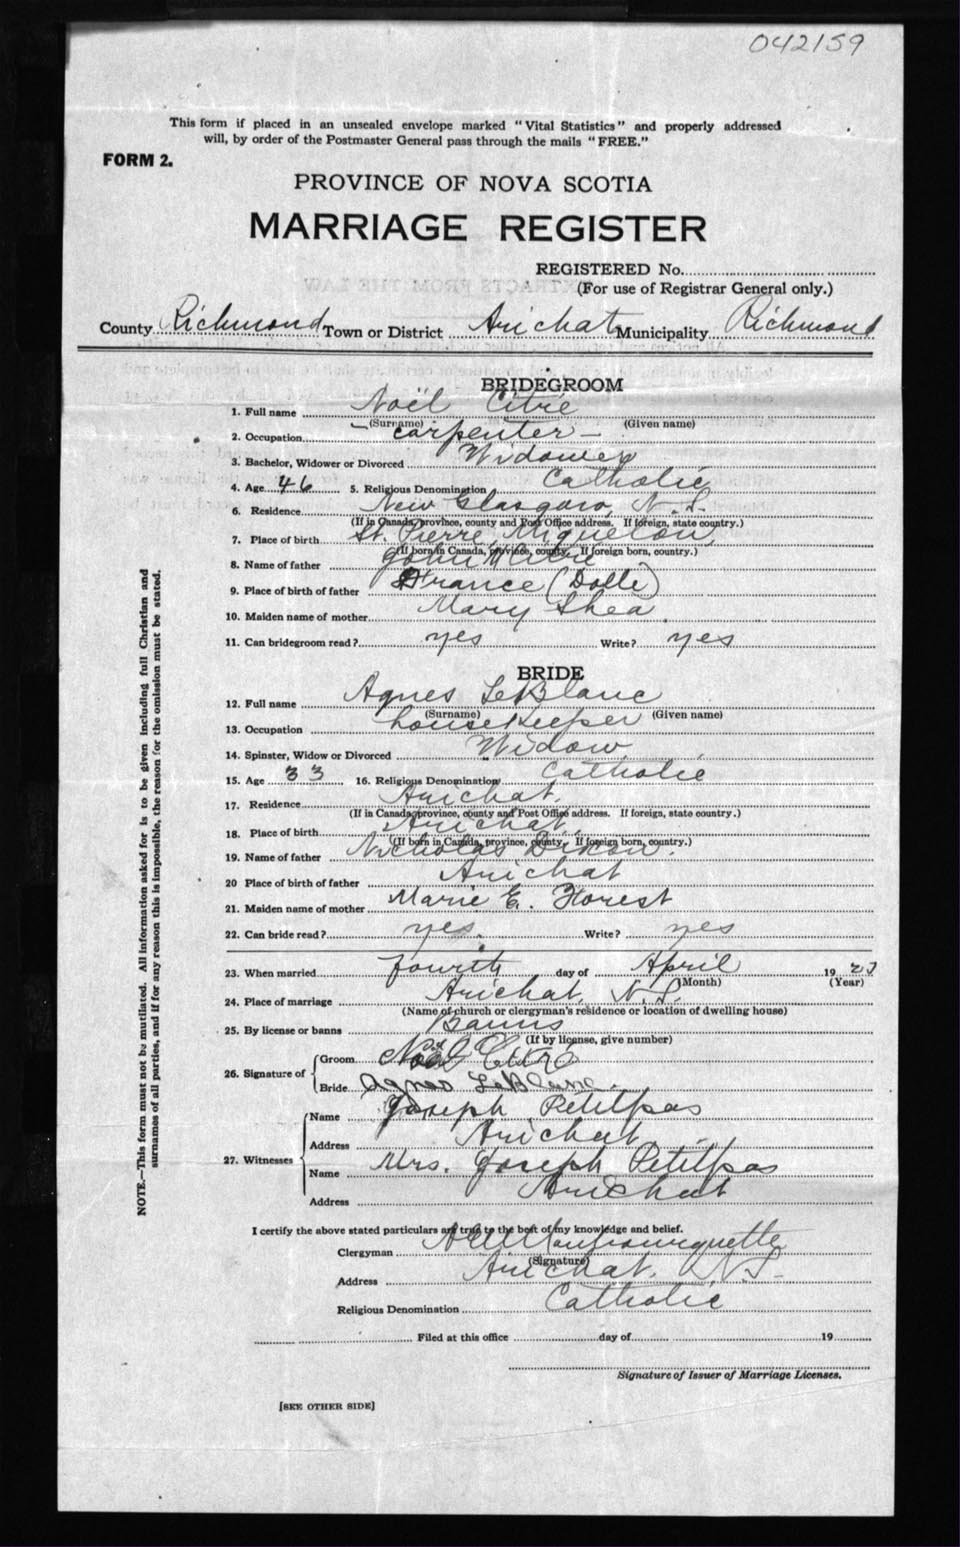 042159
This form if placed in an unsealed envelope marked "Vital Statistics" and properly addressed
will, by order of the Postmaster General pass through the mails "FREE."
FORM 2.
PROVINCE OF NOVA SCOTIA
MARRIAGE REGISTER
REGISTERED No.
(For use of Registrar General only.)
County Richmond Town or District Arichat Municipality Richmond
BRIDEGROOM
1. Full name Noël Citré
(Surname) (Given name)
2. Occupation carpenter -
3. Bachelor, Widower or Divorced Widower
4. Age 46 5. Religious Denomination Catholic
6. Residence New Glasgow, N.S.
(If in Canada, province, county and Post Office address. If foreign, state country.)
7. Place of birth St. Pierre, Miquelon,
(If born in Canada, province, county. If foreign born, country.)
8. Name of father John
9. Place of birth of father France (Dolle)
10. Maiden name of mother Mary Shea
11. Can bridegroom read? yes Write? yes
BRIDE
12. Full name Agnes LeBlanc
(Surname) (Given name)
13. Occupation housekeeper
14. Spinster, Widow or Divorced Widow
15. Age 33 16. Religious Denomination Catholic
17. Residence Arichat.
(If in Canada, province, county and Post Office address. If foreign, state country.)
18. Place of birth Arichat,
(If born in Canada, province, county. If foreign born, country.)
19. Name of father Nicholas Dixon.
20 Place of birth of father Arichat
21. Maiden name of mother Marie E. Forest
22. Can bride read? yes. Write? yes
23. When married fourth day of April 19
(Month) (Year)
24. Place of marriage Arichat, N.S.
(Name of church or clergyman's residence or location of dwelling house)
25. By license or banns Banns
(If by license, give number)
26. Signature of
Groom Noël Citré
Bride Agnes LeBlanc.
27. Witnesses
Name Joseph Petitpas
Address Arichat
Name Mrs. Joseph Petitpas
Address Arichat
I certify the above stated particulars are true to the best of my knowledge and belief.
Clergyman
(Signature)
Address Arichat, N.S.
Religious Denomination Catholic
Filed at this office day of 19
Signature of Issuer of Marriage Licenses.
[SEE OTHER SIDE]
NOTE.—This form must not be mutilated. All information asked for is to be given including full Christian and
surnames of all parties, and if for any reason this is impossible, the reason for the omission must be stated.